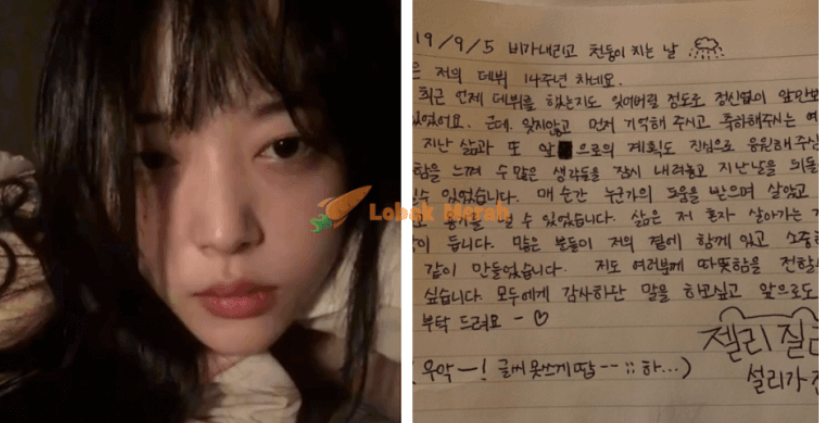 Lobak Merah
19/9/5 비가내리고 천둥이 치는 날
저의 데뷔 14주년 차네요.
최근 언제 데뷔를 했는지도 잊어버릴 정도로 정신없이 앞만보
있었어요. 근데, 잊지않고 먼저 기억해 주시고 축하해주시는 여
지난 삶과 또 앞으로의 계획도 진심으로 응원해주심
함을 느껴 수 많은 생각들을 잠시 내려놓고 지난날을 뒤돌
수 있었습니다. 매 순간 누군가의 도움을 받으며 살았고
용기를 낼 수 있었습니다. 삶은 저 혼자 살아가는 게
이 듭니다. 많은 분들이 저의 곁에 함께 있고 소중한
같이 만들었습니다. 저도 여러분께 따뜻함을 전할
싶습니다. 모두에게 감사하단 말을 하고싶고 앞으로도
부탁 드려요 - ♡
젤리
(우악-! 글씨 못쓰게땁--;; 하...)
설리가